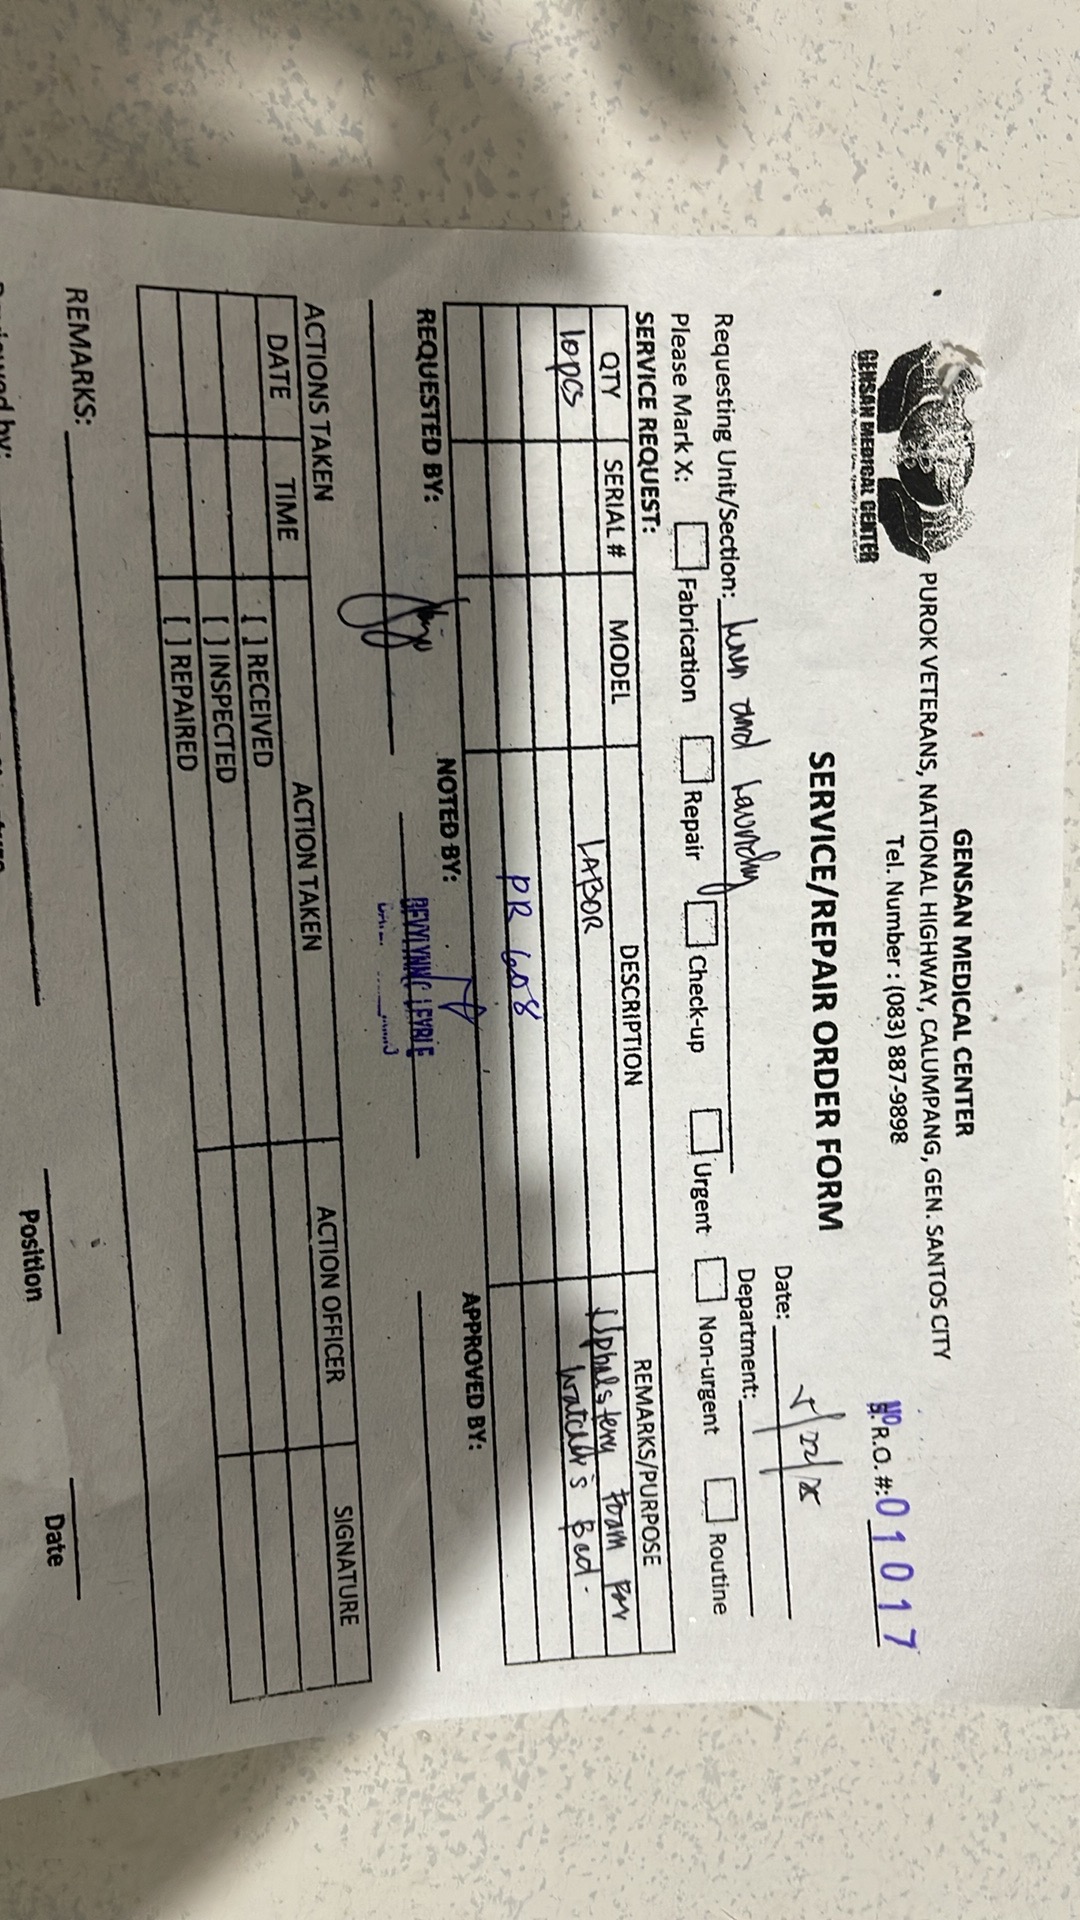 GENSAN MEDICAL CENTER
PUROK VETERANS, NATIONAL HIGHWAY, CALUMPANG, GEN. SANTOS CITY
Tel. Number : (083) 887-9898
GENSAN MEDICAL CENTER
NO
S.R.O. #: 01017
SERVICE/REPAIR ORDER FORM
Date:
Requesting Unit/Section: Linen and Laundry
Department:
Please Mark X: Fabrication Repair Check-up Urgent Non-urgent Routine
SERVICE REQUEST:
QTY SERIAL # MODEL DESCRIPTION REMARKS/PURPOSE
10pcs LABOR Upholstery foam for
watcher's Bed.
PR 608
REQUESTED BY: NOTED BY: APPROVED BY:
ACTIONS TAKEN
DATE TIME ACTION TAKEN ACTION OFFICER SIGNATURE
[ ] RECEIVED
[ ] INSPECTED
[ ] REPAIRED
REMARKS:
Position Date